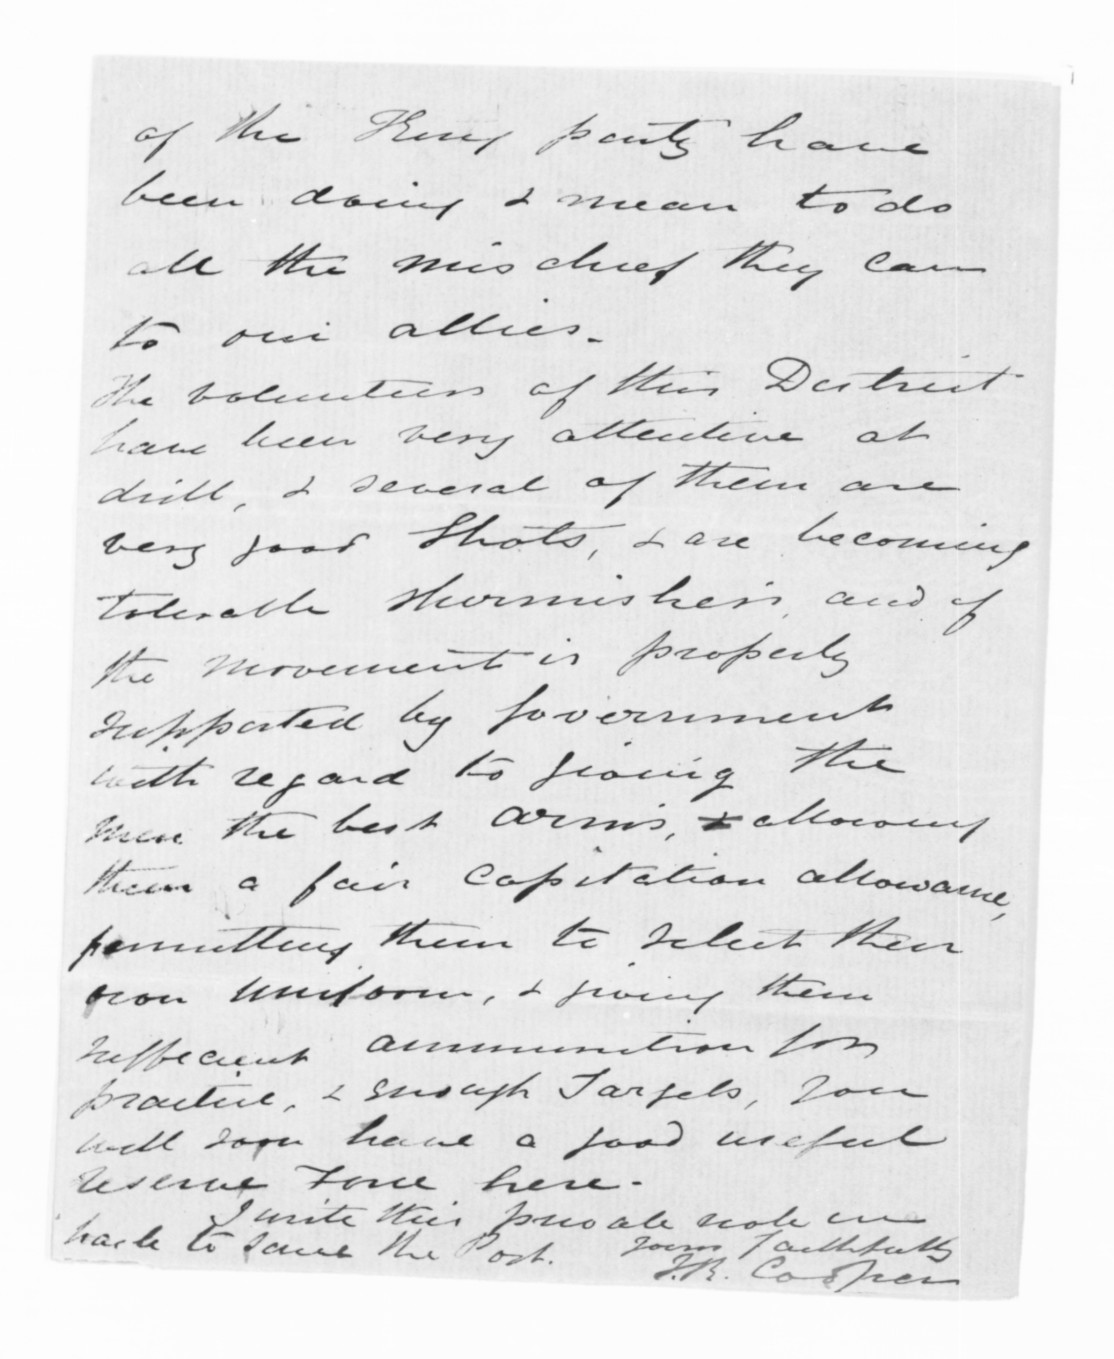 of the King party have
been doing & mean to do
all the mischief they can
to our allies.
The volunteers of this District
have been very attentive at
drill, & several of them are
very good Shots, & are becoming
tolerable skirmishers, and if
the movement is properly
supported by Government
with regard to giving the
men the best arms, & allowing
them a fair capitation allowance,
permitting them to select their
own uniform, & giving them
sufficient ammunition for
practice, & enough Targets, you
will soon have a good useful
reserve Force here.
I write this private note in
haste to save the Post. Yours faithfully
Cooper